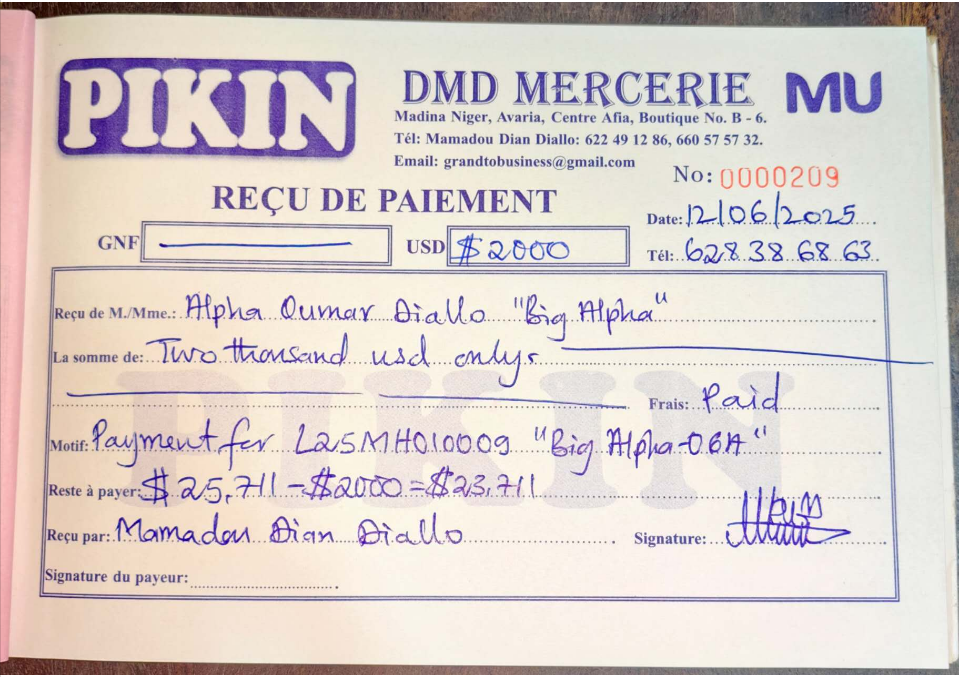 PIKIN
DMD MERCERIE
MU
Madina Niger, Avaria, Centre Afia, Boutique No. B - 6.
Tél: Mamadou Dian Diallo: 622 49 12 86, 660 57 57 32.
Email: grandtobusiness@gmail.com
No: 0000209
REÇU DE PAIEMENT
Date: 12/06/2025
GNF USD $2000
Tél: 628 38 68 63
Reçu de M./Mme.: Alpha Oumar Diallo "Big Alpha"
La somme de: Two thousand usd only.
Frais: Paid
Motif: Payment for L25MH010009 "Big Alpha-06A"
Reste à payer: $25,711 - $2000 = $23,711
Reçu par: Mamadou Dian Diallo Signature:
Signature du payeur:
PIKIN